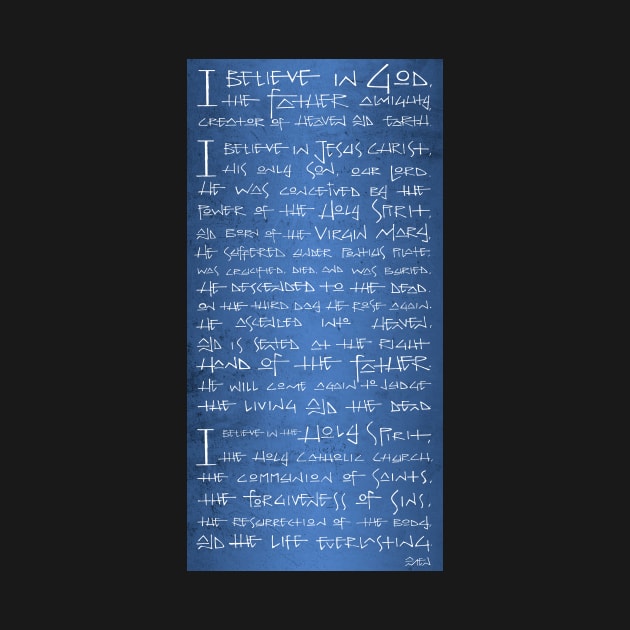 I BELIEVE IN GOD,
THE FATHER ALMIGHTY,
CREATOR OF HEAVEN AND EARTH.
I BELIEVE IN JESUS CHRIST,
HIS ONLY SON, OUR LORD.
HE WAS CONCEIVED BY THE
POWER OF THE HOLY SPIRIT,
AND BORN OF THE VIRGIN MARY,
HE SUFFERED UNDER PONTIUS PILATE;
WAS CRUCIFIED, DIED, AND WAS BURIED.
HE DESCENDED TO THE DEAD.
ON THE THIRD DAY HE ROSE AGAIN.
HE ASCENDED INTO HEAVEN,
AND IS SEATED AT THE RIGHT
HAND OF THE FATHER
HE WILL COME AGAIN TO JUDGE
THE LIVING AND THE DEAD
I BELIEVE IN THE HOLY SPIRIT,
THE HOLY CATHOLIC CHURCH,
THE COMMUNION OF SAINTS,
THE FORGIVENESS OF SINS,
THE RESURRECTION OF THE BODY,
AND THE LIFE EVERLASTING
AMEN